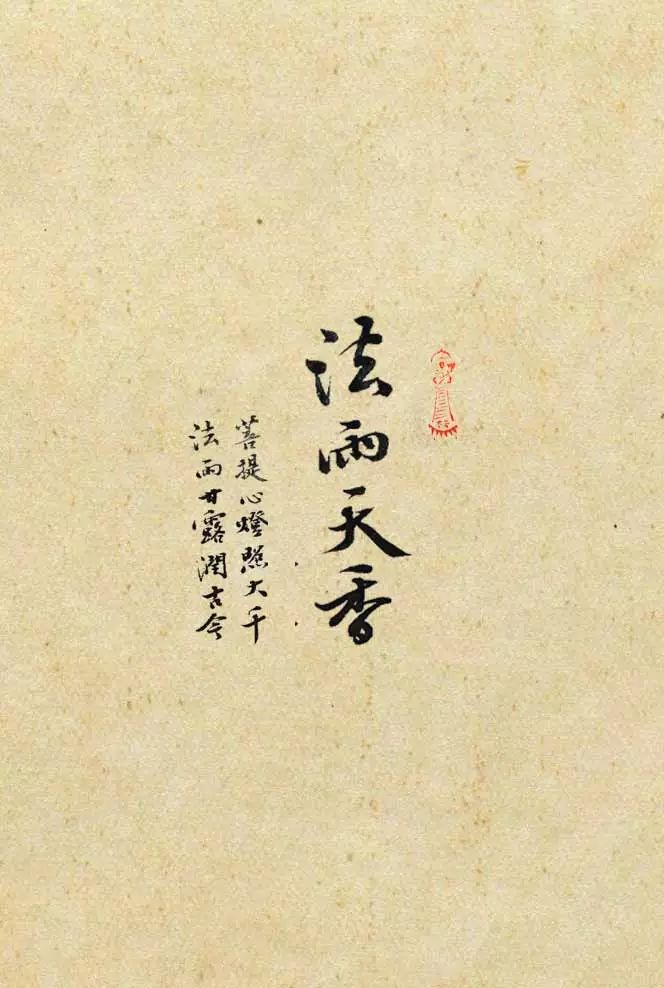 法雨天香
菩提心燈照大千
法雨甘露潤古今